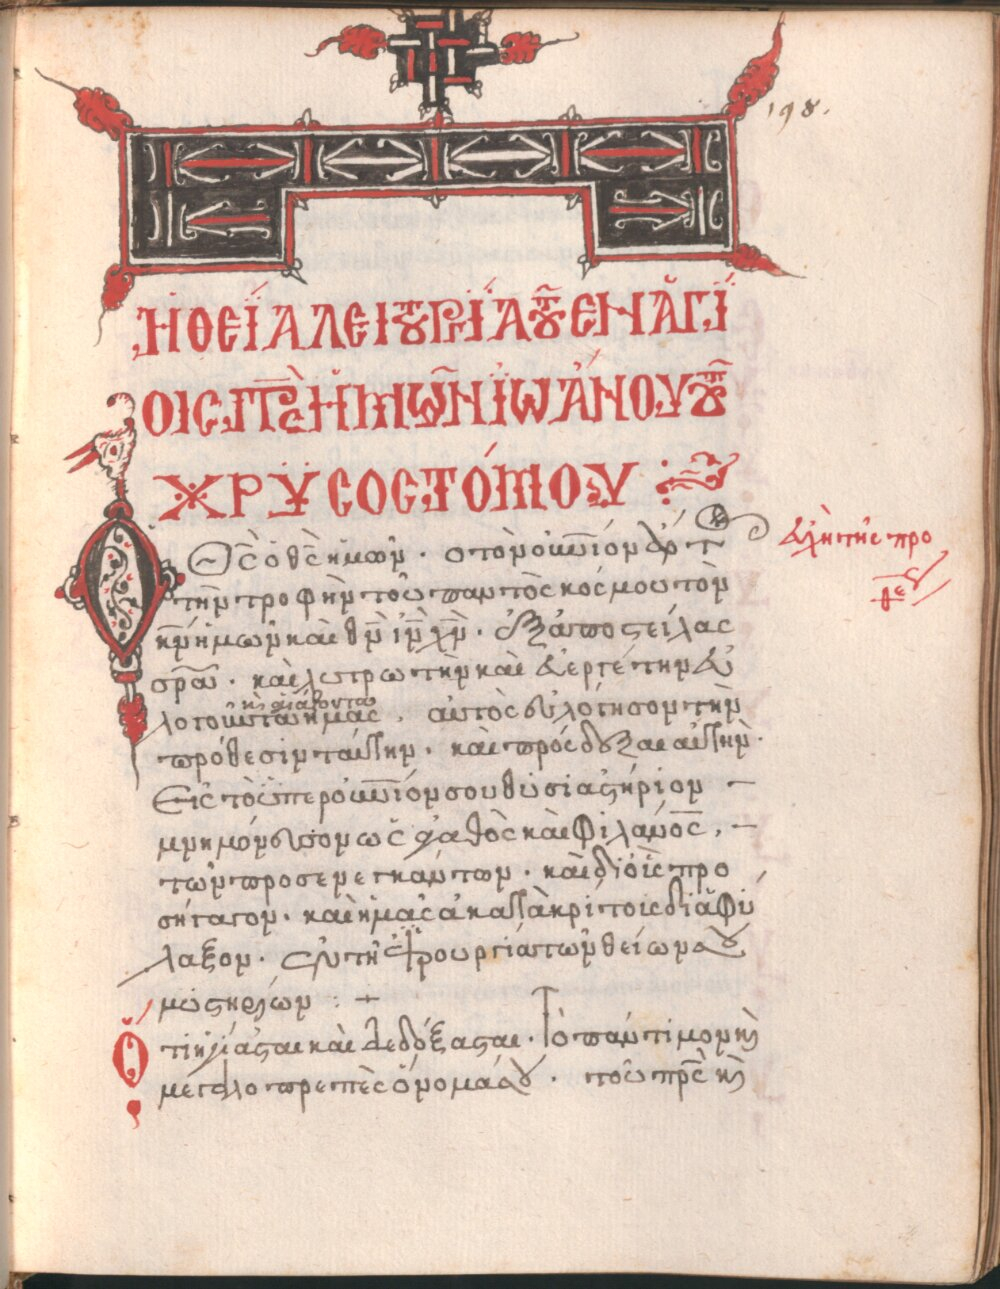 198.
Ἡ ΘΕΊΑ ΛΕΙΤΟΥΡΓΊΑ ΤΟΥ ἘΝ ἉΓΊ
ΟΙΣ ΠΡ̅Σ ἩΜΩ͂Ν ἸΩΆΝΟΥ ΤΟΥ͂
ΧΡΥΣΟΣΤΌΜΟΥ
Θς ὁ θς ἡμῶν · ὁ τὸν οὐνιον ἄρτ
τὴν τροφὴν τοῦ παντὸς κόσμου τὸν
κν ἡμῶν καὶ θν ιν χν · ἐξαποστείλας
σρα · καὶ λυτρωτὴν καὶ εὐεργέτην εὐ
κὴ ἁγιάζοντα
λογοῦντα ἡμᾶς · αὐτὸς εὐλόγησον τὴν
πρόθεσιν ταύτην · καὶ πρόσδεξαι αὐτὴν ·
Εἰς τὸ ὑπερουνιόν σου θυσιαστήριον
μνημόνευσον ὡς ἀγαθὸς καὶ φιλανος ·
τῶν προσενεγκάντων · καὶ δι' οἷς προ
σήγαγον · καὶ ἡμᾶς ἀκατακρίτους διαφύ
λαξον · ἐν τῇ ἱερουργία τῶν θείων σου
μυστηρίων : +
Ὅ
τι ἡγίασται καὶ δεδόξασται · Τὸ πάντιμον κὴ
μεγαλοπρεπὲς ὄνομά σου · τοῦ πρς κὴ
Εὐχὴ τῆς προ